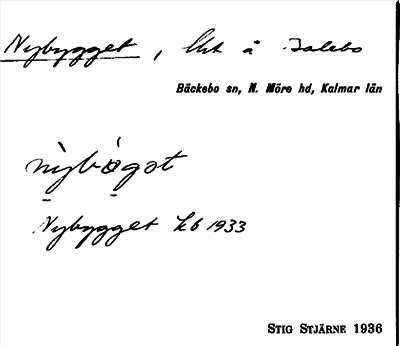 Nybygget, lht å Balebo
Bäckebo sn, N. Möre hd, Kalmar län
nỳb̀ɷgət
Nybygget kb 1933
STIG STJÄRNE 1936